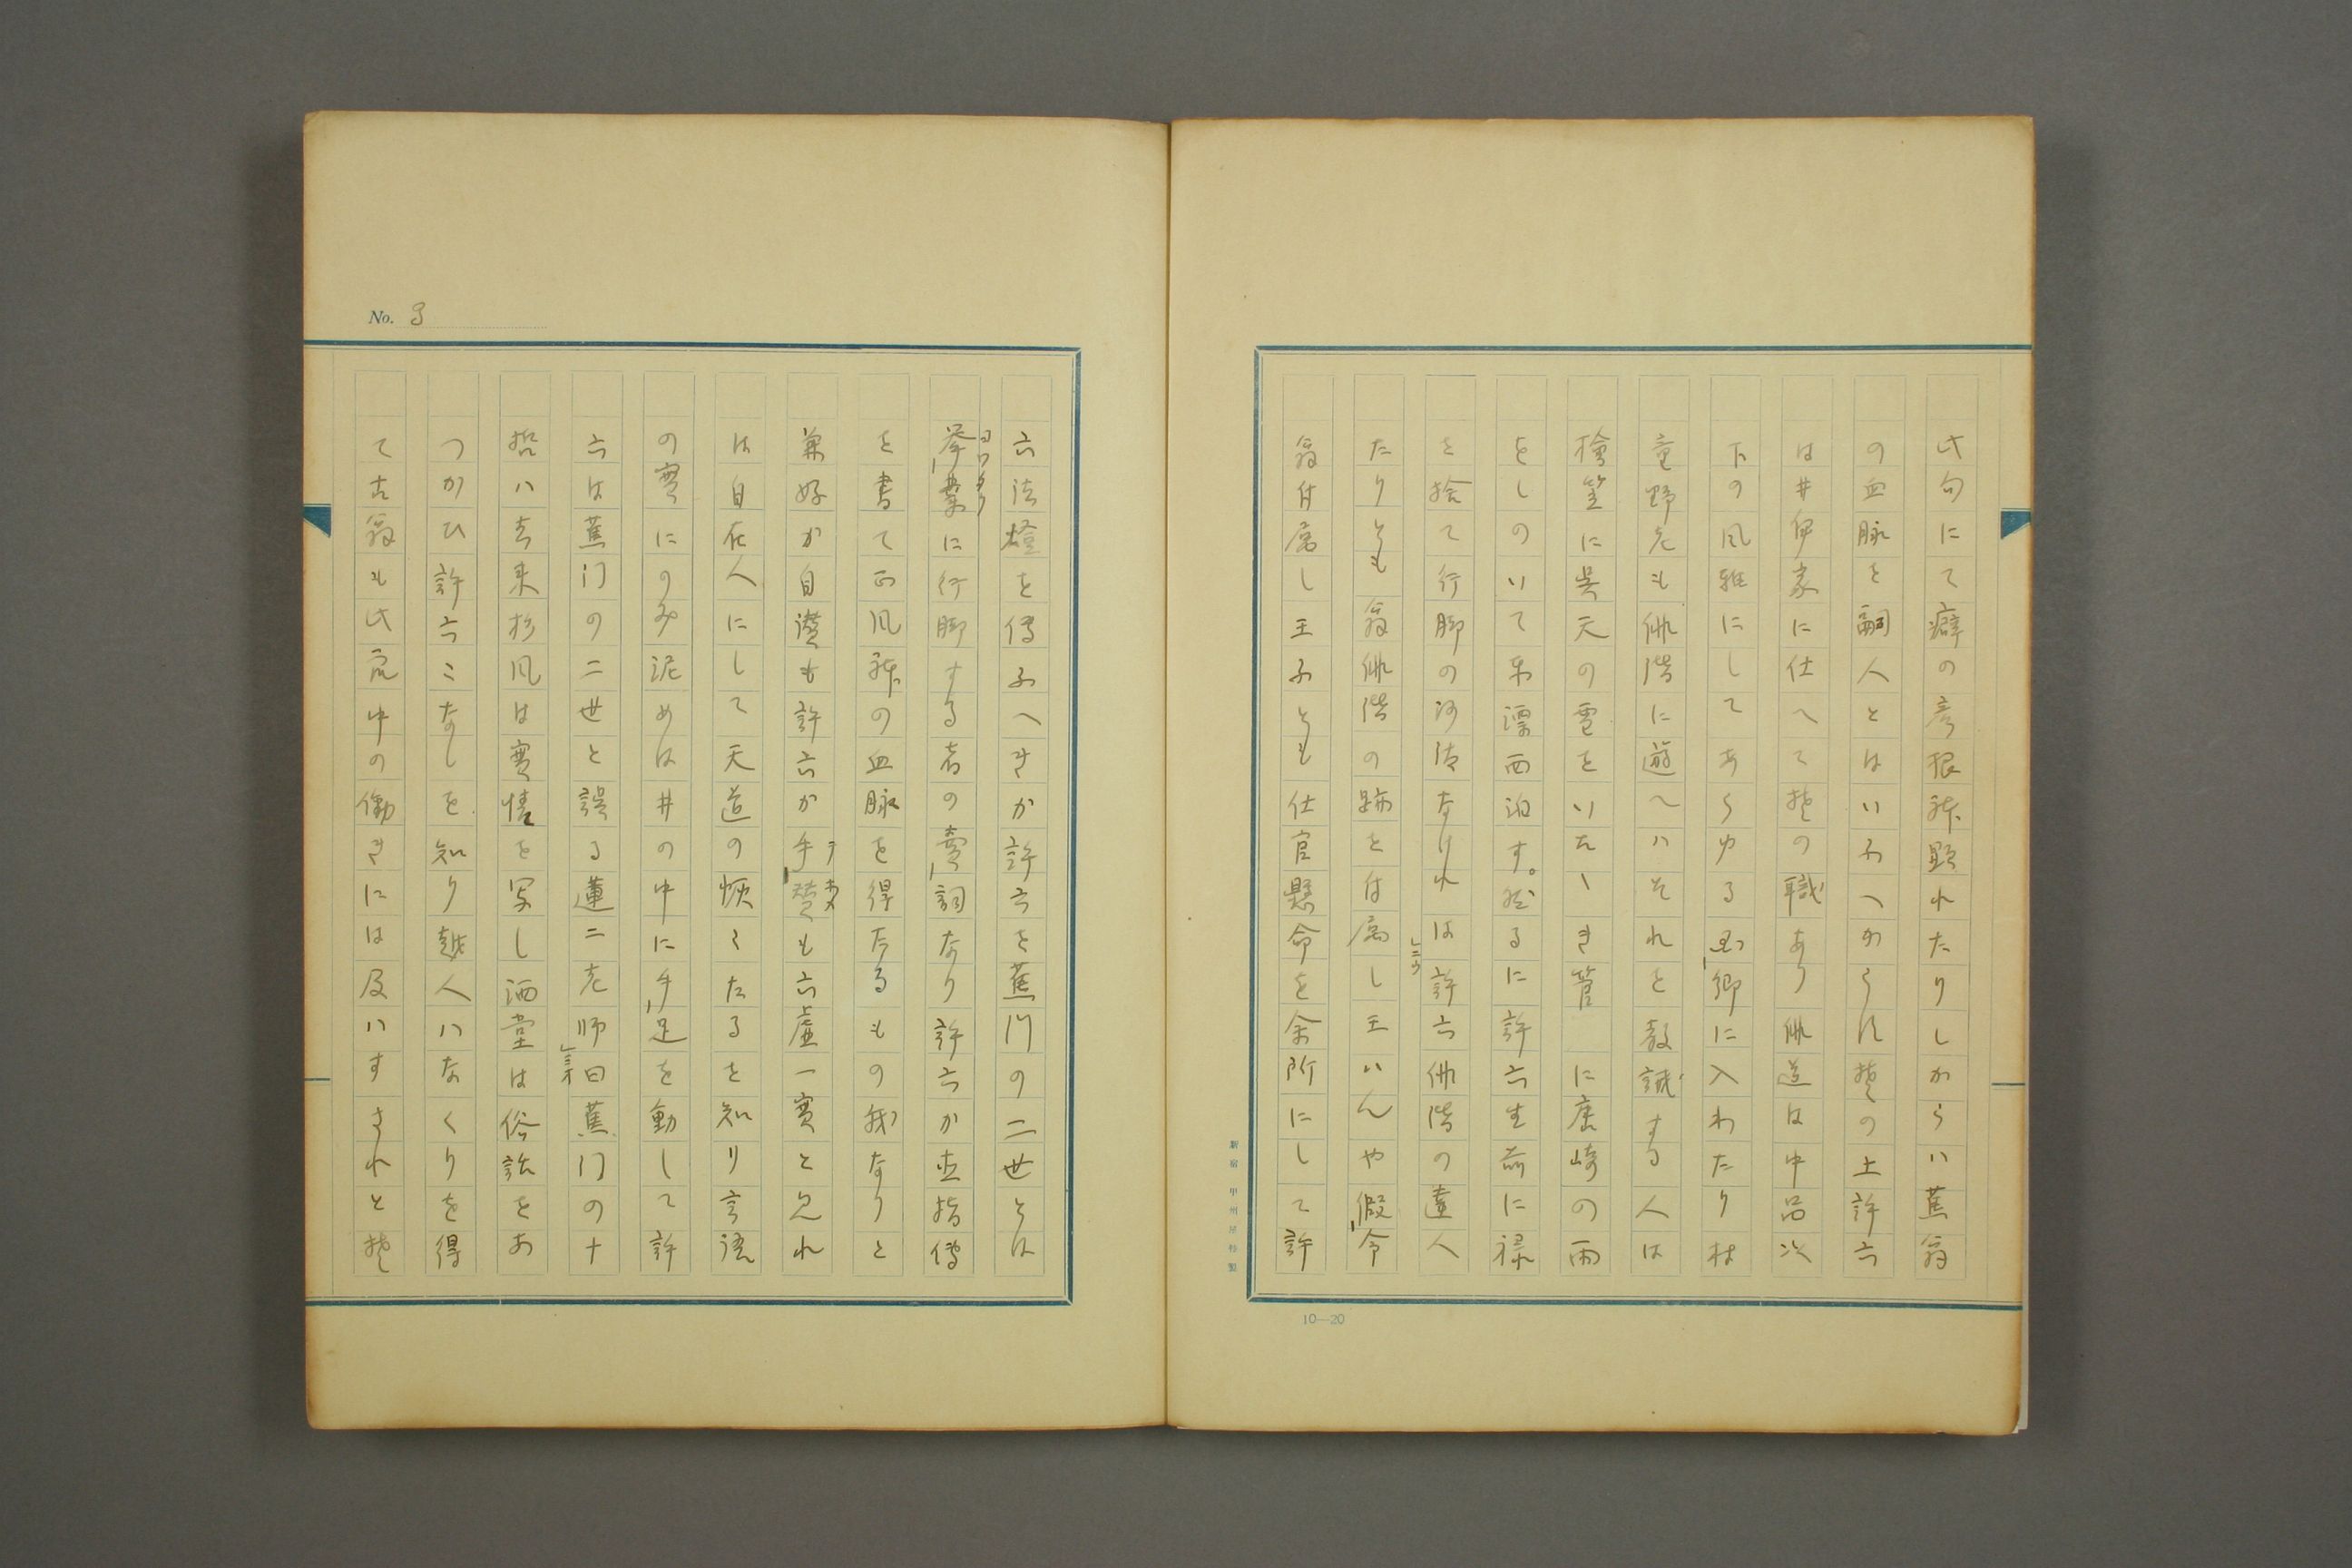 此句にて癖の彦根躰顕れたりしからハ蕉翁
の血脉を嗣人とはいふへからす其の上許六
は井伊家に仕へて其の職あり俳道は中品次
下の風雅にしてあらゆる国郷に入わたり村
童野老も俳諧に遊へハそれを教誡する人は
檜笠に呉天の雪をいたゝき管 に唐崎の雨
をしのいて東漂西泊す。然るに許六生前に禄
を捨て行脚の沙汰なけれは許六俳諧の達人
たりとも翁俳諧の跡を付属し玉ハんや假令
翁付属し玉ふとも仕官懸命を余所にして許
新宿 甲州屋特製
10—20
No. 3
六法燈を傳ふへきか許六を蕉門の二世とは
挙業に行脚する者の売詞なり許六か直指傳
を書て正風躰の血脉を得たるもの我なりと
兼好か自讃も許六か手礎も六虚一實と見れ
は自在人にして天道の恢々たるを知り言語
の實にのみ泥めは井の中に手足を動して許
六は蕉门の二世と誤る蓮二老師曰蕉门の十
哲ハ去来杉風は實情を写し洒堂は俗談をあ
つかひ許六こなしを知り越人ハなくりを得
て古翁も此窓中の働きには及ハすされと其